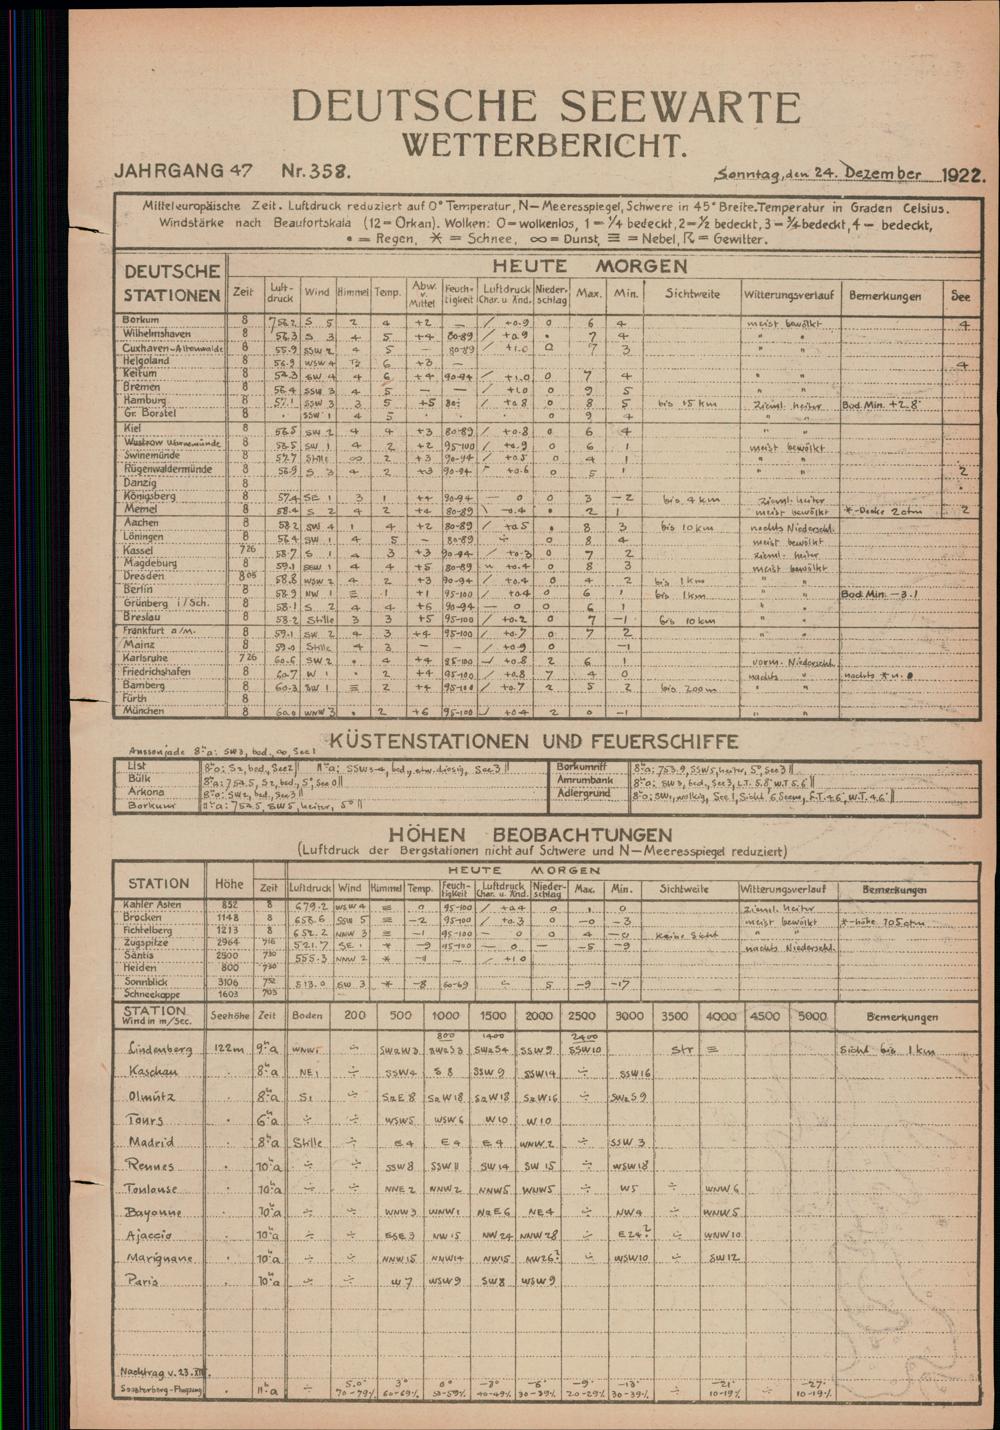 DEUTSCHE SEEWARTE
WETTERBERICHT.
JAHRGANG 47 Nr. 358. Sonntag, den 24. Dezember 1922.
Mitteleuropäische Zeit. Luftdruck reduziert auf 0° Temperatur, N—Meeresspiegel, Schwere in 45° Breite. Temperatur in Graden Celsius.
Windstärke nach Beaufortskala (12=Orkan). Wolken: 0=wolkenlos, 1=¼ bedeckt, 2=½ bedeckt, 3=¾ bedeckt, 4= bedeckt,
• = Regen, ✶ = Schnee, ∞ = Dunst, ≡ = Nebel, = Gewitter.
DEUTSCHE STATIONEN HEUTE MORGEN
Zeit Luftdruck Wind Himmel Temp. Abw. v. Mittel Feuchtigkeit Luftdruck Char. u. Änd. Niederschlag Max. Min. Sichtweite Witterungsverlauf Bemerkungen See
Borkum 8 756.2 S 5 2 4 +2 — / +0.9 0 6 4 meist bewölkt 4
Wilhelmshaven 8 56.3 S 3 4 5 +4 80-89 / +0.9 • 7 4 " "
Cuxhaven-Altenwalde 8 55.9 SSW 2 4 5 — 80-89 / +1.0 0 7 3 " "
Helgoland 8 56.9 WSW 4 6 +3 — 4
Keitum 8 SW 4 4 6 +4 90-94 / +1.0 0 7 4 " "
Bremen 8 56.4 SSW 3 4 5 — — / +1.0 0 9 5 " "
Hamburg 8 57.1 SSW 3 3 5 +5 / +0.8 0 8 5 bis 15 km Zieml. heiter Bod. Min. +2.8
Gr. Borstel 8 • SSW 1 4 5 0 9 4
Kiel 8 56.5 SW 2 4 4 +3 80-89 / +0.8 0 6 4 " "
Wustrow Warnemünde 8 SW 1 4 2 +2 95-100 / +0.9 0 6 1 meist bewölkt
Swinemünde 8 57.7 Stille ∞ 2 +3 90-94 / +0.5 0 4 1 " "
Rügenwaldermünde 8 56.9 S 3 4 2 +3 90-94 +0.6 0 5 1 " " 2
Danzig 8
Königsberg 8 57.4 SE 1 3 1 +4 90-94 — 0 0 3 −2 bis 4 km Zieml. heiter
Memel 8 58.4 S 2 4 2 +4 80-89 −0.4 • 2 1 meist bewölkt ✶-Decke 2 ctm 2
Aachen 8 58.2 SW 4 1 4 +2 80-89 / +0.5 • 8 3 bis 10 km nachts Niederschl.
Löningen 8 56.4 SW 1 4 5 — 80-89 ÷ 0 8 4 meist bewölkt
Kassel 7 26 58.7 S 1 4 3 +3 90-94 / +0.3 0 7 2 zieml. heiter
Magdeburg 8 59.1 SSW 1 4 4 +5 80-89 +0.4 0 8 3 meist bewölkt
Dresden 8 05 58.8 WSW 2 4 2 +3 90-94 / +0.4 0 4 2 bis 1 km " "
Berlin 8 58.9 NW 1 ≡ 1 +1 95-100 / +0.4 0 6 1 bis 1 km " " Bod. Min. −3.1
Grünberg i/Sch. 8 58.1 S 2 4 4 +6 90-94 — 0 0 6 1 " "
Breslau 8 58.2 Stille 3 3 +5 95-100 / +0.2 0 7 −1 bis 10 km " "
Frankfurt a/M. 8 59.1 SW 2 4 3 +4 95-100 / +0.7 0 7 2 " "
Mainz 8 59.0 Stille 4 3 — — / +0.9 0 −1
Karlsruhe 7 26 60.6 SW 2 • 4 +4 85-100 +0.8 2 6 1 vorm. Niederschl.
Friedrichshafen 8 60.7 W 1 • 2 +4 95-100 / +0.8 7 4 0 nachts " nachts ✶ u. •
Bamberg 8 60.3 SW 1 ≡ 2 +4 95-100 / +0.7 2 5 2 bis 200 m " "
Fürth 8
München 8 60.0 WNW 3 • 2 +6 95-100 +0.4 2 0 −1 " "
KÜSTENSTATIONEN UND FEUERSCHIFFE
Aussenjade 8ʰa: SW3, bed., ∞, See 1
List 8ʰa: S2, bed., See 2 || 11ʰa: SSW 3-4, bed., etw. diesig, See 3 ||
Bülk 8ʰa: 754.5, S2, bed., 5°, See 0 ||
Arkona 8ʰa: SW2, bed., See 3 ||
Borkum 11ʰa: 754.5, SW5, heiter, 5° ||
Borkumriff 8ʰa: 753.9, SSW5, heiter, 5°, See 3 ||
Amrumbank 8ʰa: SW3, bed., See 3, L.T. 5.8° W.T. 5.6° ||
Adlergrund 8ʰa: SW1, wolkig, See 1, Sicht 6 Seem, L.T. 4.6°, W.T. 4.6° ||
HÖHEN BEOBACHTUNGEN
(Luftdruck der Bergstationen nicht auf Schwere und N—Meeresspiegel reduziert)
HEUTE MORGEN
STATION Höhe Zeit Luftdruck Wind Himmel Temp. Feuchtigkeit Luftdruck Char. u. Änd. Niederschlag Max. Min. Sichtweite Witterungsverlauf Bemerkungen
Kahler Asten 852 8 679.2 WSW 4 ≡ 0 95-100 / +0.4 0 1 0 zieml. heiter
Brocken 1148 8 658.6 SSW 5 ≡ −2 95-100 / +0.3 0 −0 −3 meist bewölkt ✶-höhe 105 ctm
Fichtelberg 1213 8 652.2 NNW 3 ≡ −1 95-100 — 0 0 4 −0 keine Sicht " "
Zugspitze 2964 7 16 521.7 SE 1 ✶ −9 95-100 — 0 — −5 −9 nachts Niederschl.
Säntis 2500 7 30 555.3 NNW 2 ✶ — / +1.0
Heiden 800 7 30
Sonnblick 3106 7 52 513.0 SW 3 ✶ −8 60-69 ÷ 5 −9 −17
Schneekoppe 1603 7 03
STATION Wind in m/Sec. Seehöhe Zeit Boden 200 500 1000 1500 2000 2500 3000 3500 4000 4500 5000 Bemerkungen
800 1400 2400
Lindenberg 122m 9ʰa WNW1 ÷ SWzW3 SWzS3 SWzS4 SSW9 SSW10 Str ≡ Sicht bis 1 km
Kaschau . 8ʰa NE1 ÷ SSW4 S8 SSW9 SSW14 ÷ SSW16
Olmütz . 8ʰa S1 ÷ SzE8 SzW18 SzW18 SzW16 ÷ SWzS9
Tours . 6ʰa ÷ ÷ WSW5 WSW6 W10 W10
Madrid . 8ʰa Stille ÷ E4 E4 E4 WNW2 ÷ SSW3
Rennes . 10ʰa ÷ ÷ SSW8 SSW11 SW14 SW15 ÷ WSW18
Toulouse . 10ʰa ÷ ÷ NNE2 NNW2 NNW5 WNW5 ÷ W5 ÷ WNW6
Bayonne . 10ʰa ÷ ÷ WNW3 WNW1 NzE6 NE4 ÷ NW4 ÷ WNW5
Ajaccio . 10ʰa ÷ ÷ ESE3 NW15 NW24 NNW28 ÷ E24? ÷ WNW10
Marignane . 10ʰa ÷ ÷ NNW15 NNW14 NW15 NW26? ÷ WSW10 ÷ SW12
Paris . 10ʰa ÷ ÷ W7 WSW9 SW8 WSW9
Nachtrag v. 23.XII.
Soesterberg-Flugzeug . 11ʰa ÷ 5.0° 70-79% 3° 60-69% 0° 50-59% −3° 40-49% −6° 30-39% −9° 20-29% −13° 30-39% ÷ −21° 10-19% ÷ −27° 10-19%